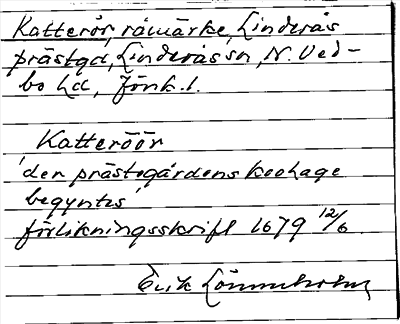 Katterör, råmärke, Linderås
prästgd, Linderås sn, N. Ved-
bo hd, Jönk. l.
Katteröör
'der prästegårdens koohage
begyntes'
förlikningsskrift 1679 12/6.
Erik